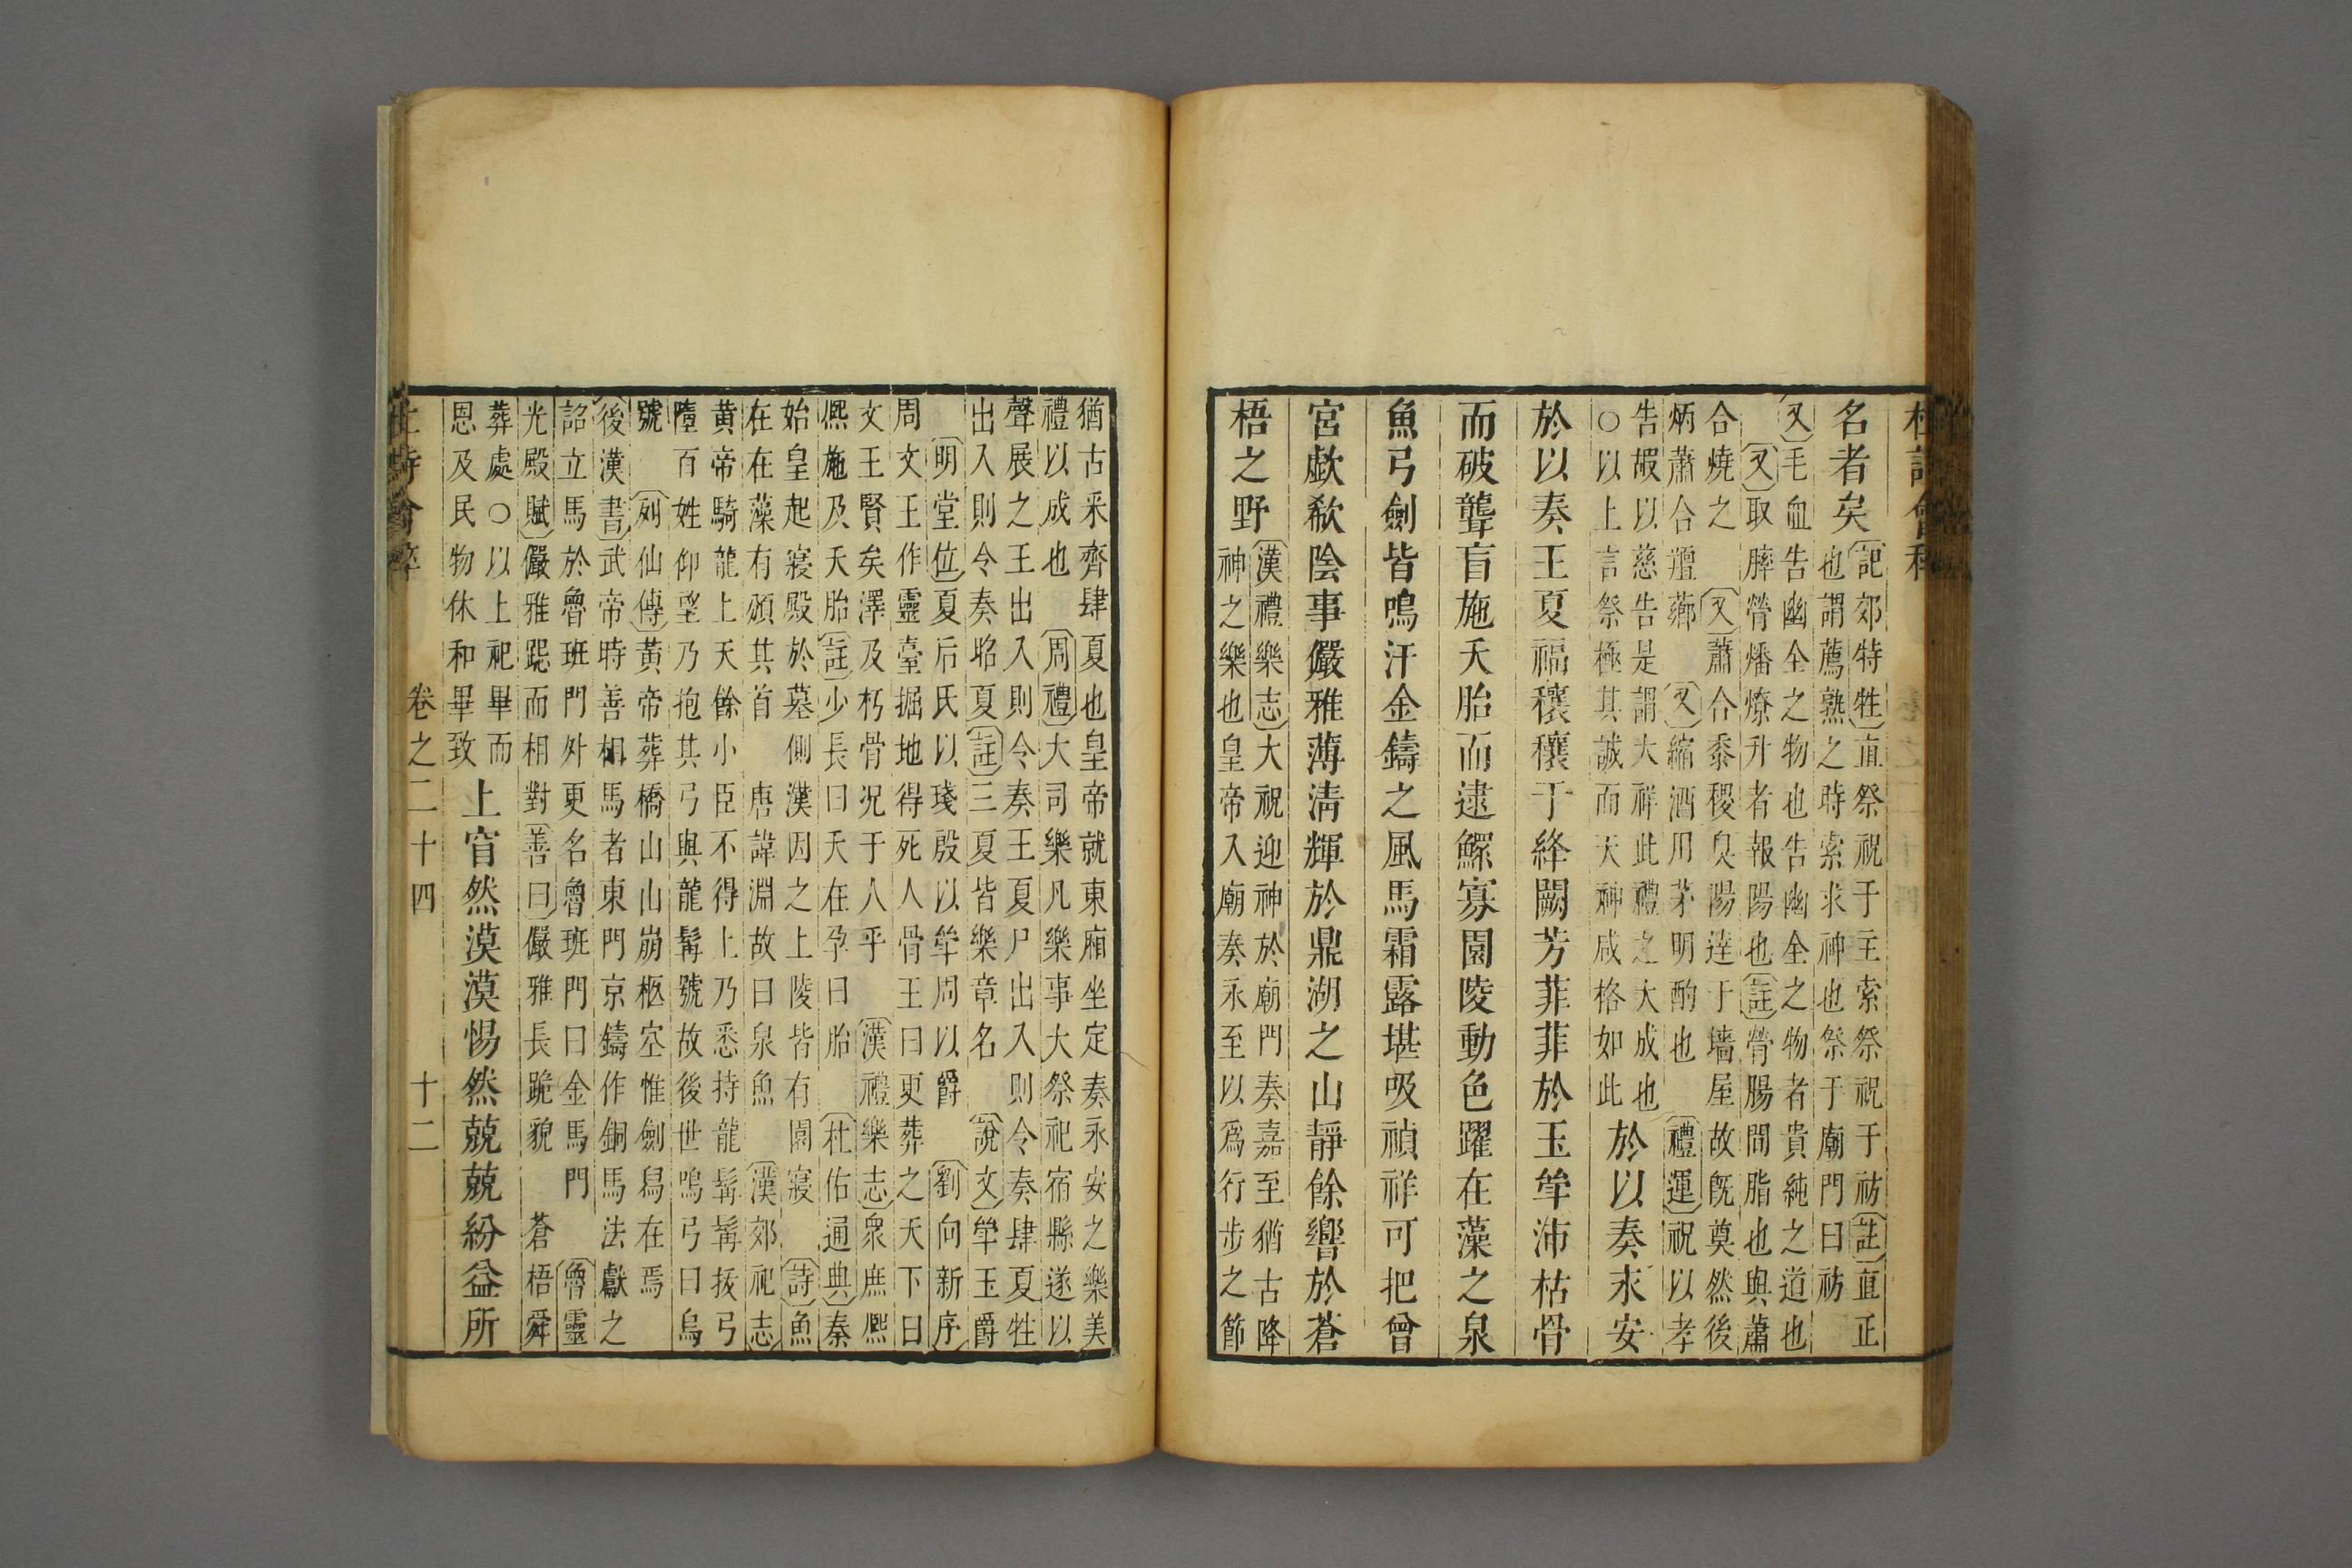 杜詩會稡
名者矣
〔記郊特牲〕直祭祝于主索祭祝于祊〔註〕直正
也謂薦熟之時索求神也祭于廟門曰祊
〔又〕毛血告幽全之物也告幽全之物者貴純之道也
〔又〕取膟膋燔燎升者報陽也〔註〕膋腸間脂也與蕭
合燒之〔又〕蕭合黍稷臭陽達于墻屋故既奠然後
炳蕭合羶薌〔又〕縮酒用茅明酌也〔禮運〕祝以孝
告嘏以慈告是謂大祥此禮之大成也
○以上言祭極其誠而天神咸格如此
於以奏永安
於以奏王夏福穰穰于絳闕芳菲菲於玉斝沛枯骨
而破聾盲施夭胎而逮鰥寡園陵動色躍在藻之泉
魚弓劍皆鳴汗金鑄之風馬霜露堪吸禎祥可把曾
宮歔欷陰事儼雅薄清輝於鼎湖之山靜餘響於蒼
梧之野
〔漢禮樂志〕大祝迎神於廟門奏嘉至猶古降
神之樂也皇帝入廟奏永至以為行步之節
猶古采齊肆夏也皇帝就東廂坐定奏永安之樂美
禮以成也〔周禮〕大司樂凡樂事大祭祀宿縣遂以
聲展之王出入則令奏王夏尸出入則令奏肆夏牲
出入則令奏昭夏〔註〕三夏皆樂章名〔說文〕斝玉爵
〔明堂位〕夏后氏以琖殷以斝周以爵〔劉向新序〕
周文王作靈臺掘地得死人骨王曰更葬之天下曰
文王賢矣澤及朽骨况于人乎〔漢禮樂志〕衆庶熈
熈施及夭胎〔註〕少長曰夭在孕曰胎〔杜佑通典〕秦
始皇起寢殿於墓側漢因之上陵皆有園寢〔詩〕魚
在在藻有頒其首 唐諱淵故曰泉魚〔漢郊祀志〕
黃帝騎龍上天餘小臣不得上乃悉持龍髯髯拔弓
墮百姓仰望乃抱其弓與龍髯號故後世鳴弓曰烏
號〔列仙傳〕黃帝葬橋山山崩柩空惟劍舄在焉
〔後漢書〕武帝時善相馬者東門京鑄作銅馬法獻之
詔立馬於魯班門外更名魯班門曰金馬門〔魯靈
光殿賦〕儼雅跽而相對〔善曰〕儼雅長跪貌 蒼梧舜
葬處○以上祀畢而
恩及民物休和畢致
上窅然漠漠惕然兢兢紛益所
杜詩會稡 卷之二十四 十二